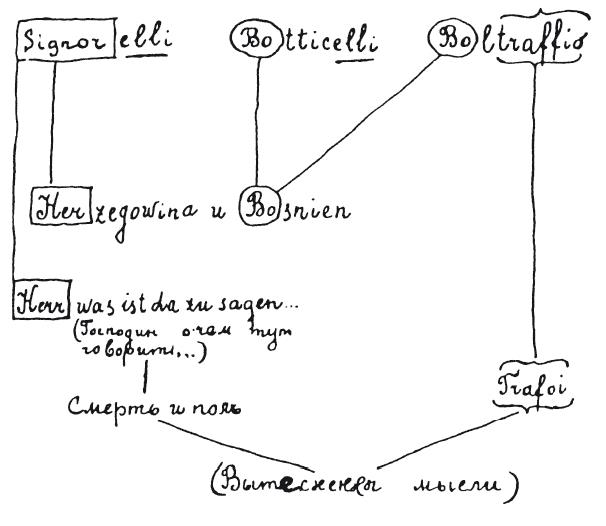 Signorelli Botticelli Boltraffio
Herzegowina и Bosnien
Herr was ist da zu sagen...
(Господин о чем тут
говорить...)
Trafoi
Смерть и поль
(Вытеснены мысли)